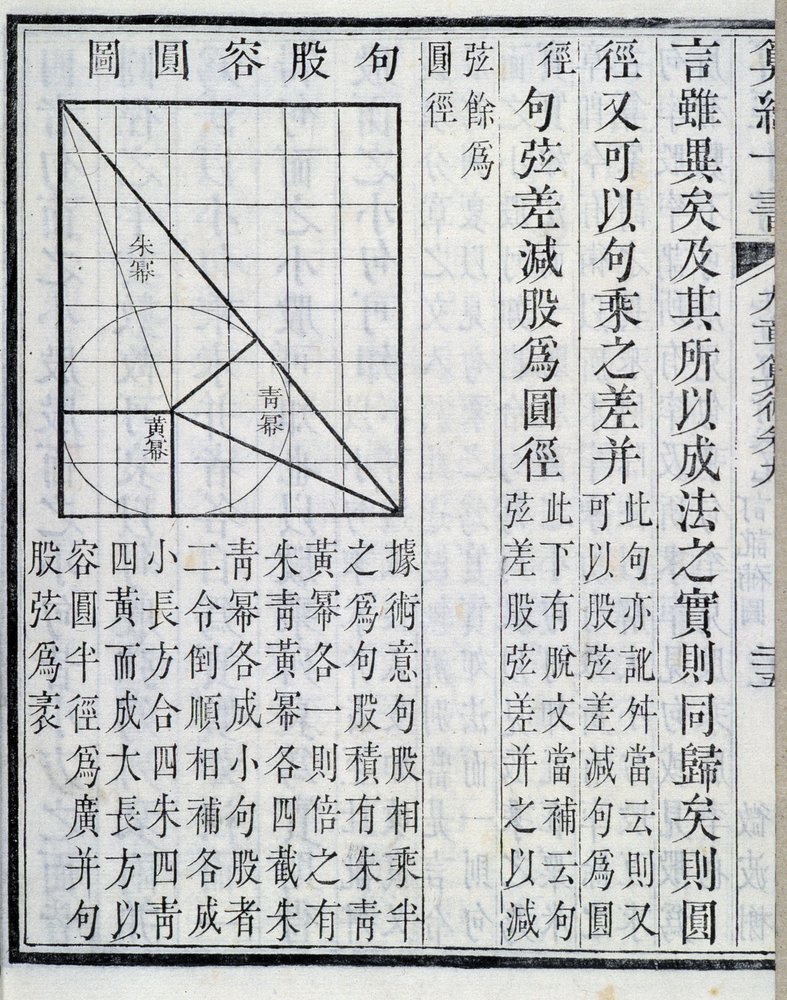 算經十書
九章算術卷九
訂訛補圖
三五
微波榭
言雖異矣及其所以成法之實則同歸矣則圓
徑又可以句乘之差并
此句亦訛舛當云則又
可以股弦差減句爲圓
徑
句弦差減股爲圓徑
此下有脫文當補云句
弦差股弦差并之以減
弦餘爲
圓徑
句股容圓圖
朱冪
青冪
黃冪
據術意句股相乘半
之爲句股積有朱青
黃冪各一則倍之有
朱青黃冪各四截朱
青冪各成小句股者
二令倒順相補各成
小長方合四朱四青
四黃而成大長方以
容圓半徑爲廣并句
股弦爲袤